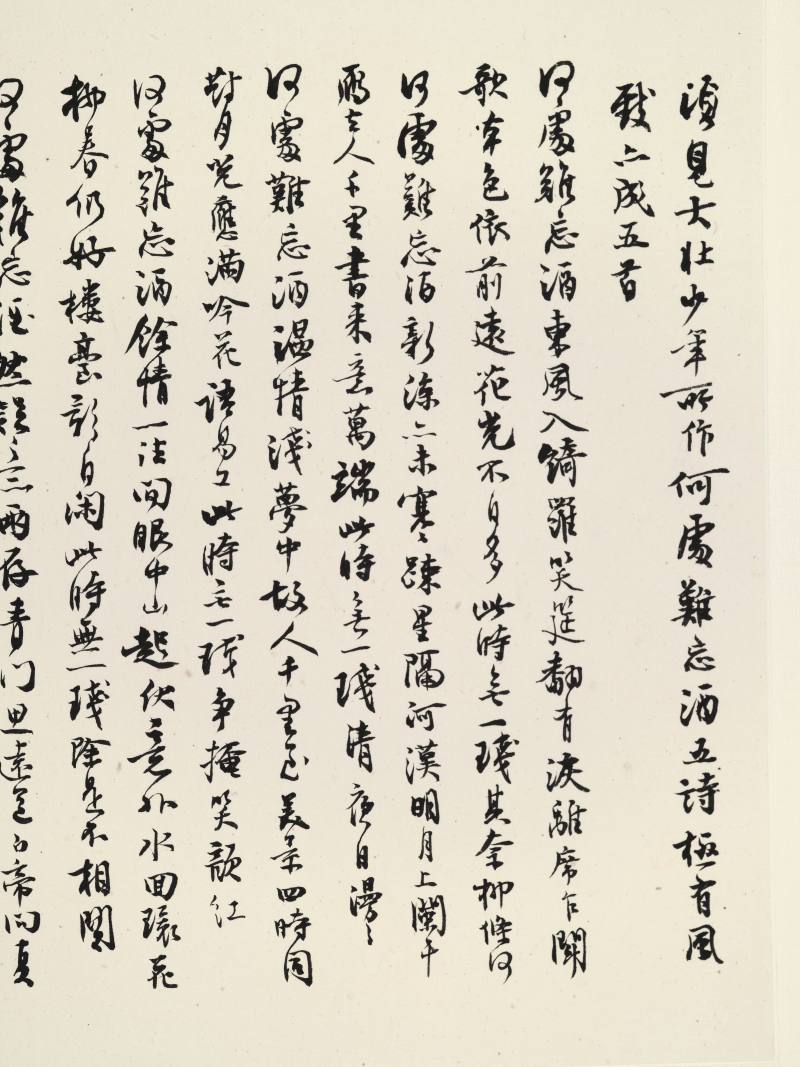 須見大壯少年所作何處難忘酒五詩極有風
致亦成五首
何處難忘酒東風入綺羅笑筵翻有淚離席乍聞
歌草色依前遠花光不自多此時無一琖其奈柳條何
何處難忘酒新涼亦未寒疎星隔河漢明月上闌干
雁去人千里書來意萬端此時無一琖清夜日漫漫
何處難忘酒溫情淺夢中故人千里至美景四時同
對月光應滿吟花語易工此時無一琖爭掩笑顏紅
何處難忘酒餘情一註間眼中山起伏意外水回環花
柳春仍好樓臺影自閑此時無一琖除是不相關
何處難忘酒 兩存青門思遠 白帝問真